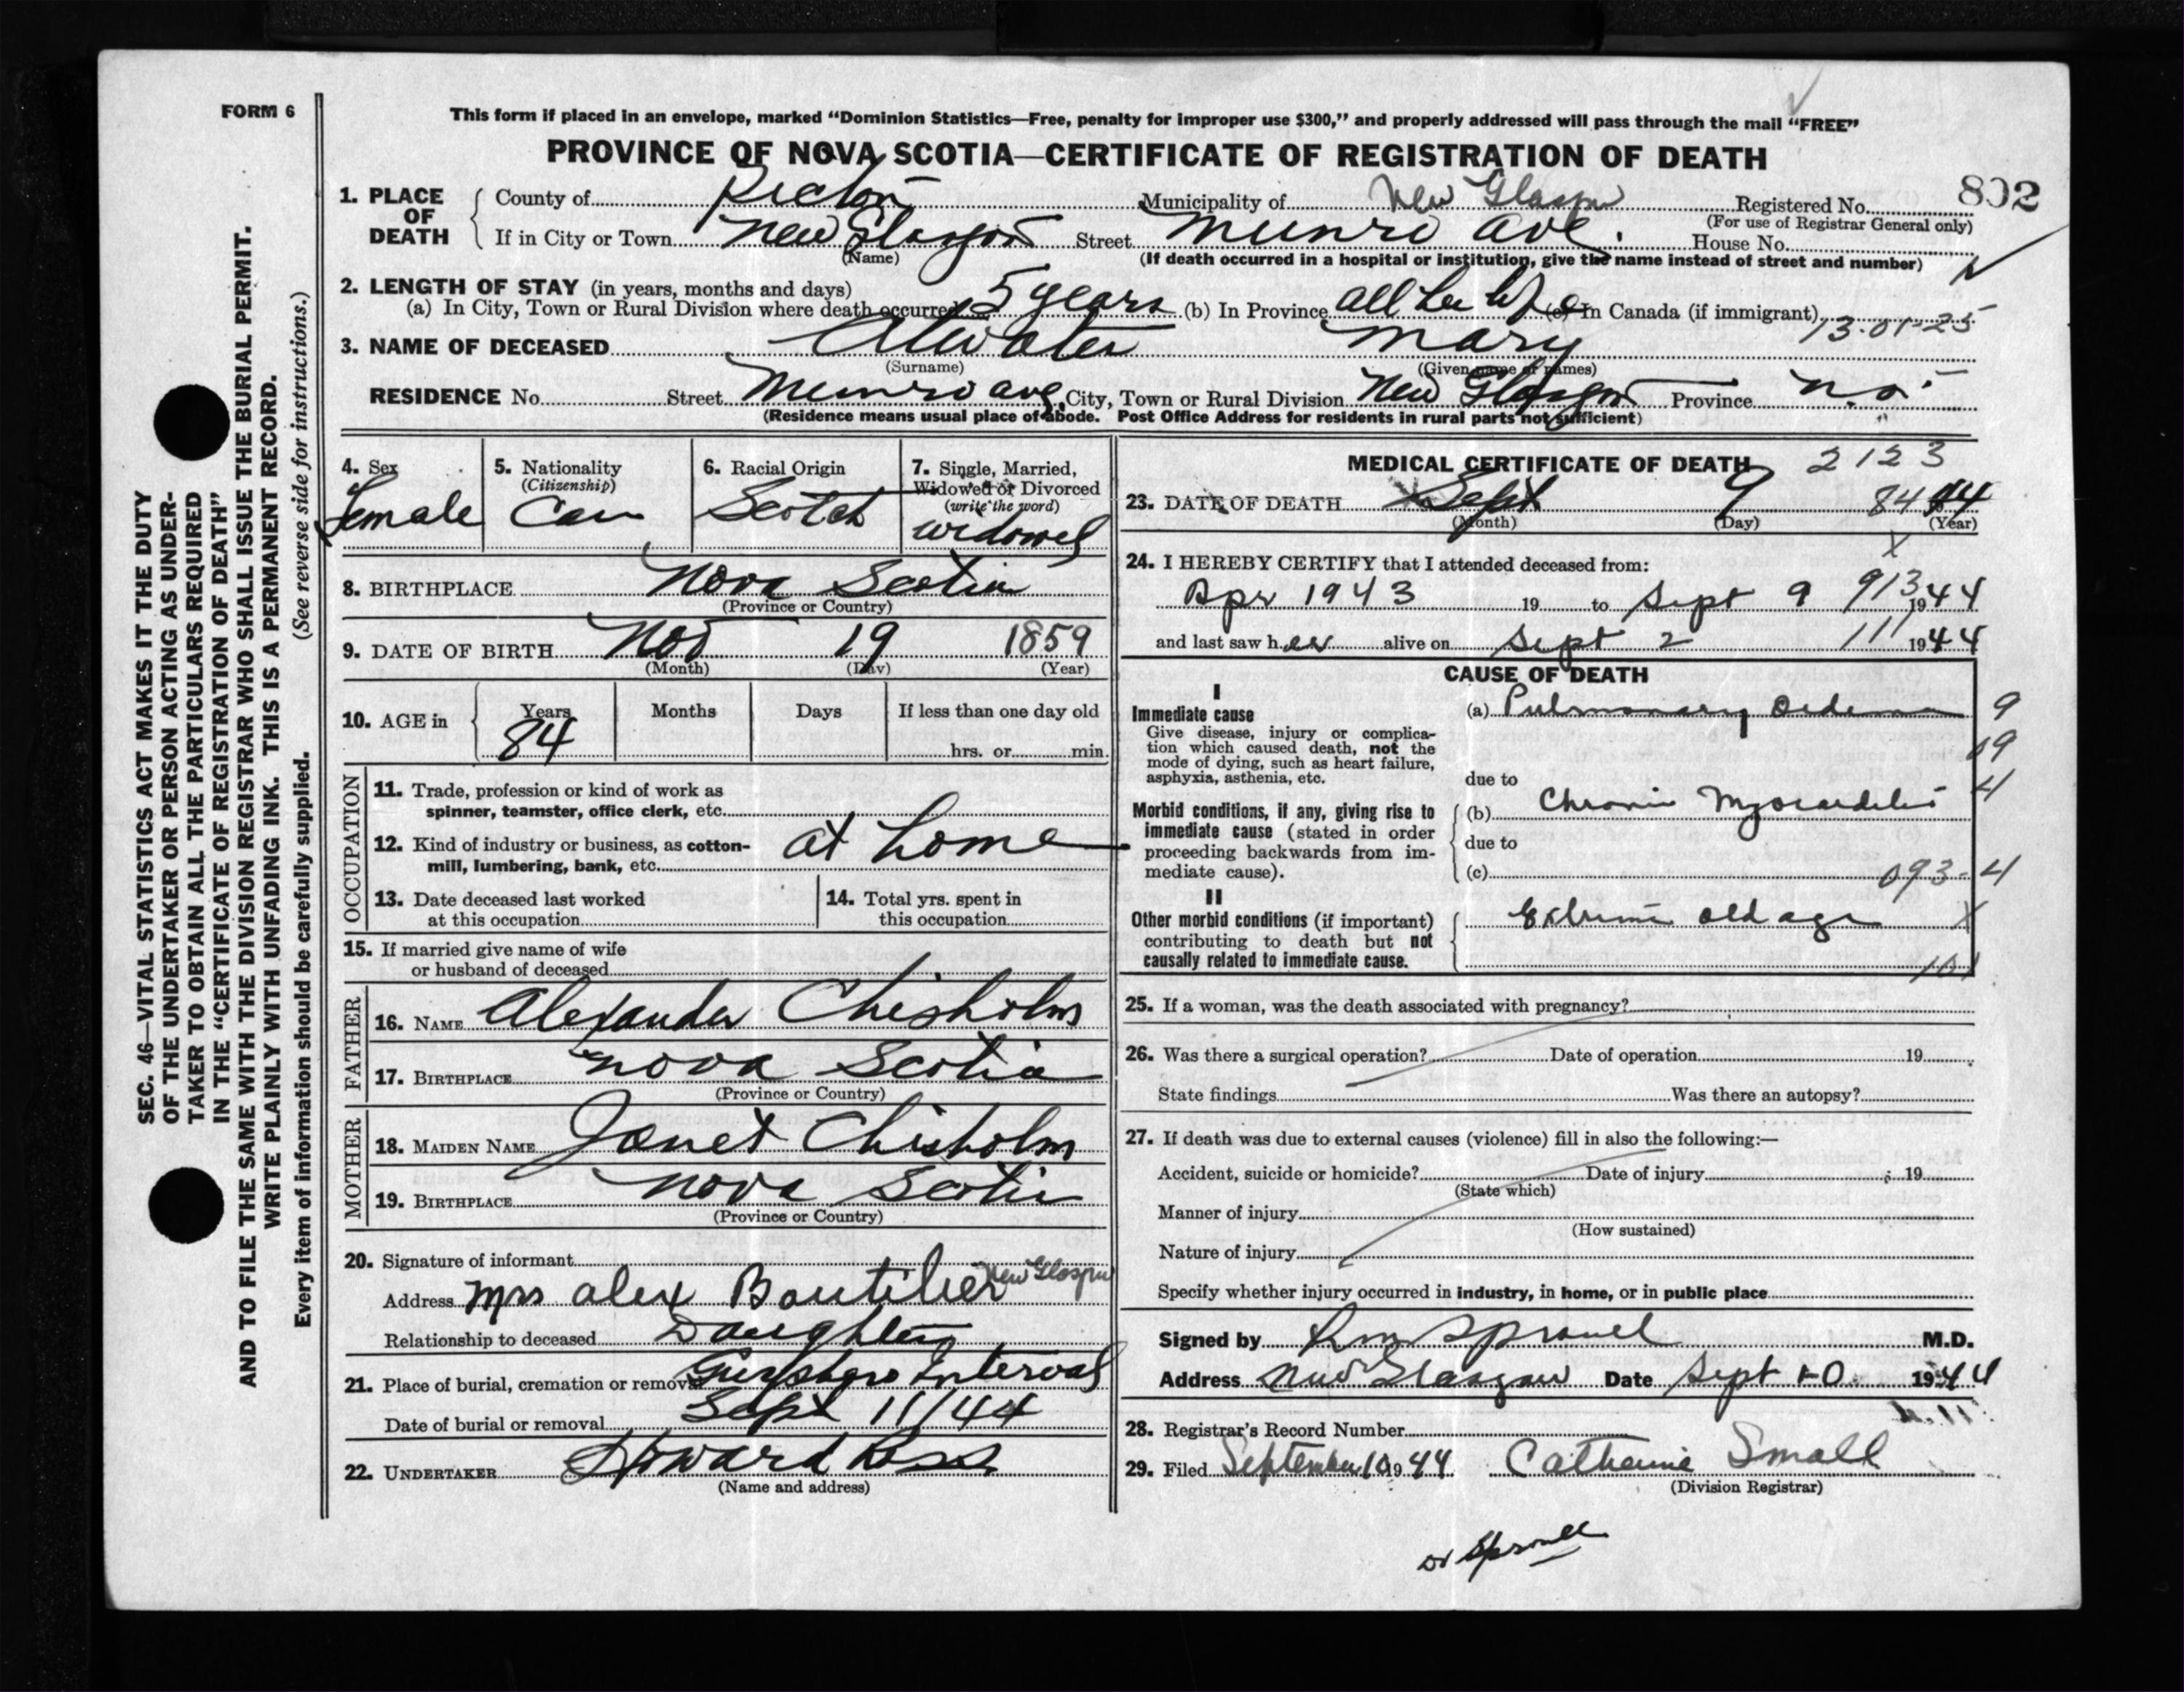 FORM 6
This form if placed in an envelope, marked “Dominion Statistics—Free, penalty for improper use $300,” and properly addressed will pass through the mail “FREE”
PROVINCE OF NOVA SCOTIA—CERTIFICATE OF REGISTRATION OF DEATH
802
1. PLACE OF DEATH County of Pictou Municipality of New Glasgow Registered No.
(For use of Registrar General only)
If in City or Town New Glasgow Street Munro Ave. House No.
(Name) (If death occurred in a hospital or institution, give the name instead of street and number)
2. LENGTH OF STAY (in years, months and days)
(a) In City, Town or Rural Division where death occurred 5 years (b) In Province all her life (c) In Canada (if immigrant)
13-01-25
3. NAME OF DECEASED Atwater Mary
(Surname) (Given name or names)
RESIDENCE No. Street Munro ave City, Town or Rural Division New Glasgow Province n.s.
(Residence means usual place of abode. Post Office Address for residents in rural parts not sufficient)
4. Sex Female
5. Nationality (Citizenship) Can
6. Racial Origin Scotch
7. Single, Married, Widowed or Divorced (write the word) widowed
8. BIRTHPLACE Nova Scotia
(Province or Country)
9. DATE OF BIRTH Nov 19 1859
(Month) (Day) (Year)
10. AGE in Years 84 Months Days If less than one day old
hrs. or min.
OCCUPATION
11. Trade, profession or kind of work as
spinner, teamster, office clerk, etc.
12. Kind of industry or business, as cotton-
mill, lumbering, bank, etc. at home
13. Date deceased last worked
at this occupation
14. Total yrs. spent in
this occupation
15. If married give name of wife
or husband of deceased
FATHER
16. NAME Alexander Chisholm
17. BIRTHPLACE nova Scotia
(Province or Country)
MOTHER
18. MAIDEN NAME Janet Chisholm
19. BIRTHPLACE nova Scotia
(Province or Country)
20. Signature of informant
Address Mrs alex Boutilier New Glasgow
Relationship to deceased Daughter
21. Place of burial, cremation or removal Guysboro Interval
Date of burial or removal Sept 11/44
22. UNDERTAKER Howard Ross
(Name and address)
MEDICAL CERTIFICATE OF DEATH 2123
23. DATE OF DEATH Sept 9 84 44
(Month) (Day) (Year)
24. I HEREBY CERTIFY that I attended deceased from:
Apr 1943 19 to Sept 9 913 1944
and last saw her alive on Sept 2 111 1944
CAUSE OF DEATH
I
Immediate cause
Give disease, injury or complica-
tion which caused death, not the
mode of dying, such as heart failure,
asphyxia, asthenia, etc.
(a) Pulmonary Oedema 9
09
due to 4
Morbid conditions, if any, giving rise to
immediate cause (stated in order
proceeding backwards from im-
mediate cause).
(b) Chronic Myocarditis
due to
(c) 093-4
II
Other morbid conditions (if important)
contributing to death but not
causally related to immediate cause.
Extreme old age X
101
25. If a woman, was the death associated with pregnancy?
26. Was there a surgical operation? Date of operation 19
State findings Was there an autopsy?
27. If death was due to external causes (violence) fill in also the following:—
Accident, suicide or homicide? Date of injury 19
(State which)
Manner of injury
(How sustained)
Nature of injury
Specify whether injury occurred in industry, in home, or in public place
Signed by Sproull M.D.
Address New Glasgow Date Sept 10 1944
28. Registrar's Record Number
29. Filed September 10 1944 Catherine Small
(Division Registrar)
Dr Sproull
SEC. 46—VITAL STATISTICS ACT MAKES IT THE DUTY
OF THE UNDERTAKER OR PERSON ACTING AS UNDER-
TAKER TO OBTAIN ALL THE PARTICULARS REQUIRED
IN THE “CERTIFICATE OF REGISTRATION OF DEATH”
AND TO FILE THE SAME WITH THE DIVISION REGISTRAR WHO SHALL ISSUE THE BURIAL PERMIT.
WRITE PLAINLY WITH UNFADING INK. THIS IS A PERMANENT RECORD.
Every item of information should be carefully supplied. (See reverse side for instructions.)